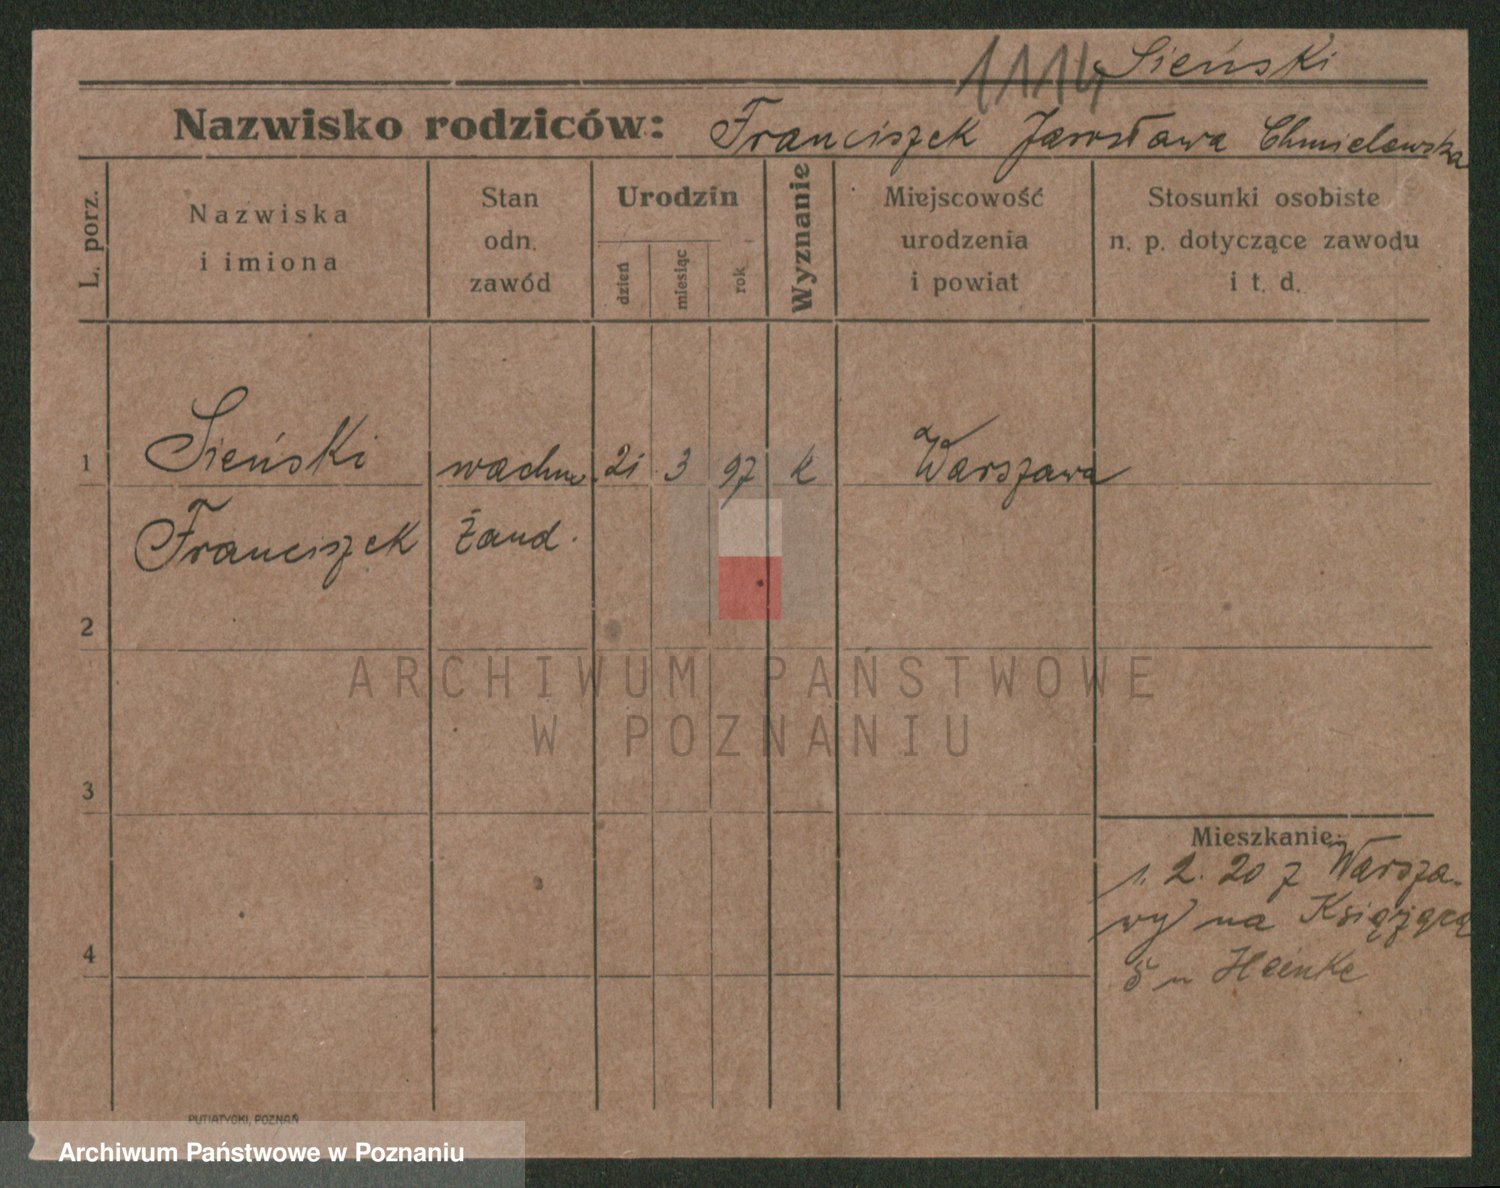 1114 Sieński
Nazwisko rodziców: Franciszek Jarosława Chmielewska
L. porz.
Nazwiska
i imiona
Stan
odn.
zawód
Urodzin
dzień
miesiąc
rok
Wyznanie
Miejscowość
urodzenia
i powiat
Stosunki osobiste
n. p. dotyczące zawodu
i t. d.
1 Sieński wachm. 21 3 97 k Warszawa
Franciszek Żand.
2
3
4
Mieszkanie:
1. 2. 20 z Warsza-
wy na Książęcą
5 u Heinke
PUTIATYCKI, POZNAŃ
ARCHIWUM PAŃSTWOWE
W POZNANIU
Archiwum Państwowe w Poznaniu